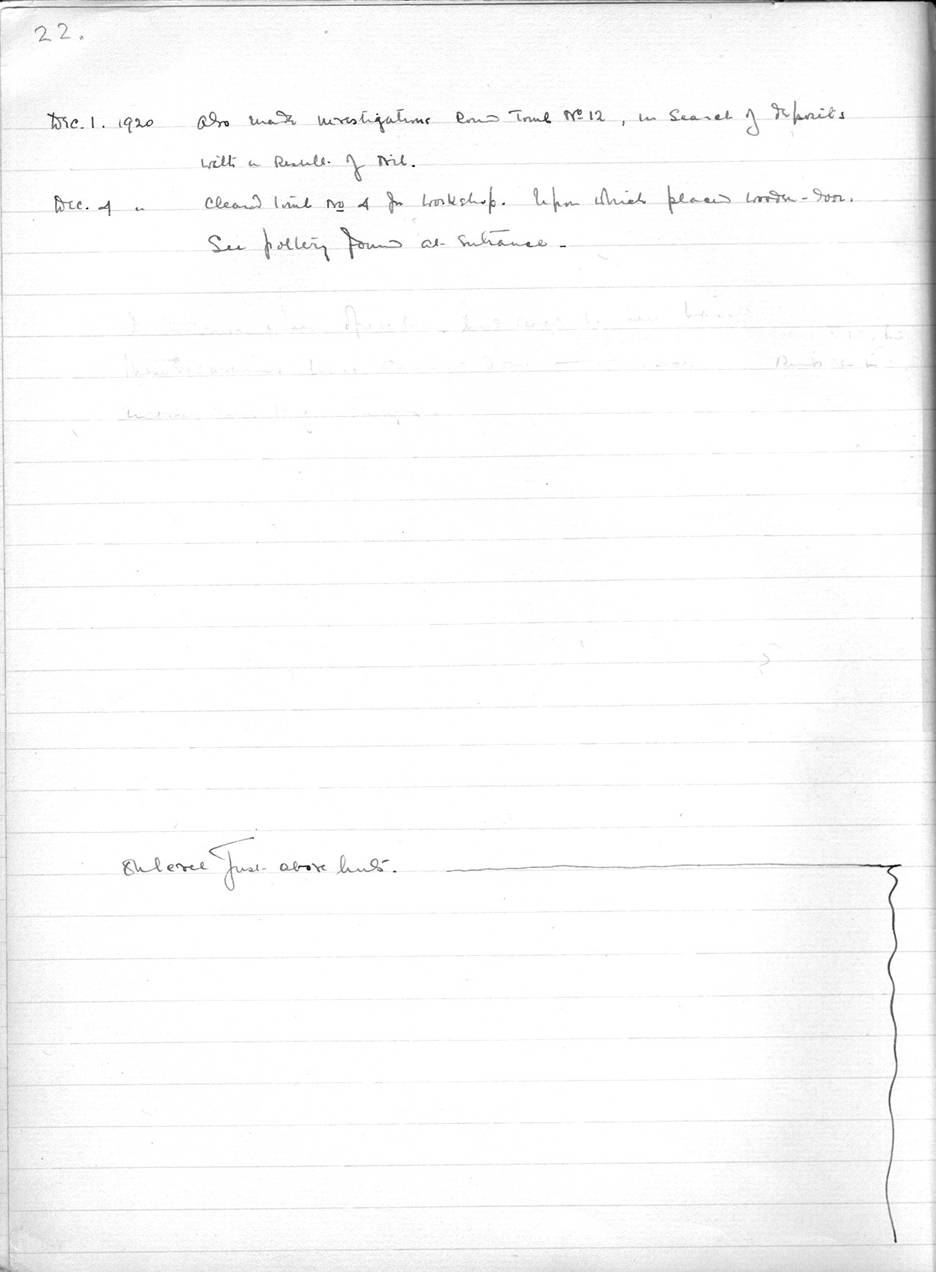 22.
Dec. 1. 1920 Also made investigations round Tomb No 12, in search of deposits
with a Result of Nil.
Dec. 4 " Cleared Tomb No 4 for workshop. Upon which placed wooden-door.
See pottery found at entrance -
just above huts.